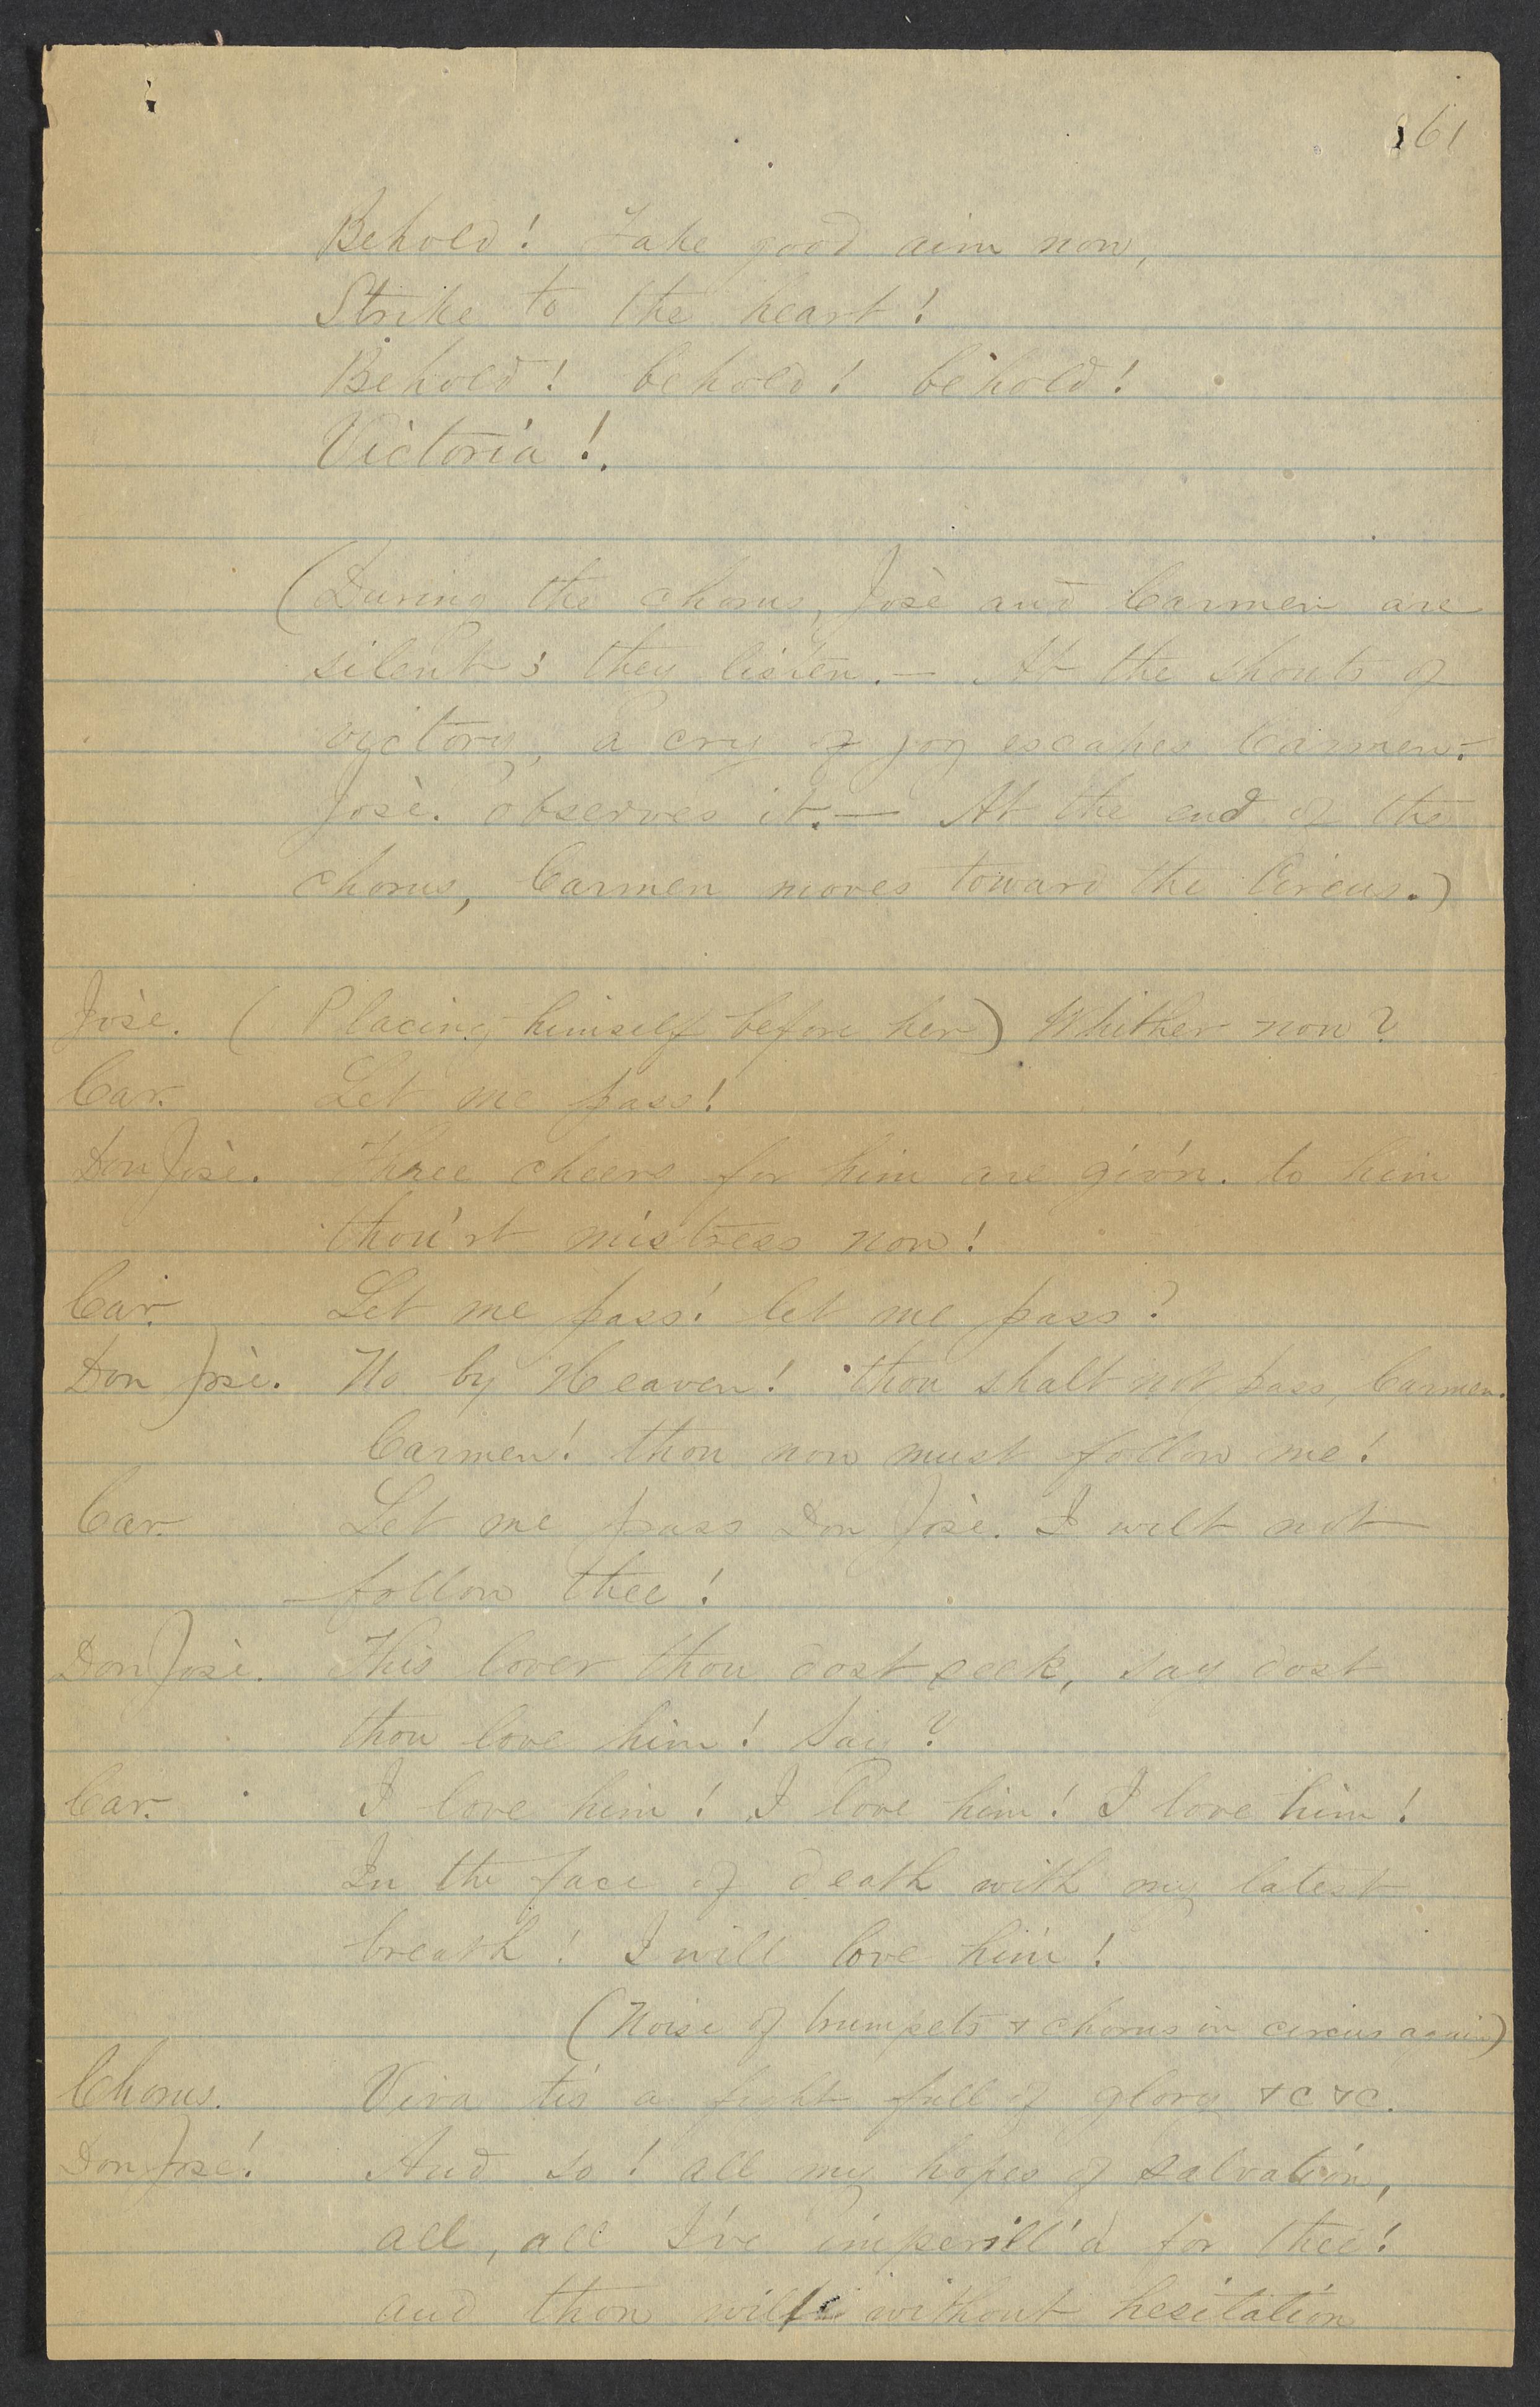 61
Behold! Take good aim now,
Strike to the heart!
Behold! behold! behold!
Victoria!.
(During the chorus, Josè and Carmen are
silent; they listen. — At the shouts of
victory, a cry of joy escapes Carmen.
Josè. observes it. — At the end of the
chorus, Carmen moves toward the Circus.)
Josè. (Placing himself before her) Whither now?
Car. Let me pass!
Don Josè. Three cheers for him are giv'n. to him
thou'rt mistress now!
Car. Let me pass! let me pass?
Don Josè. No by Heaven! thou shalt not pass, Carmen.
Carmen! thou now must follow me!
Car. Let me pass Don Josè. I wilt not
follow thee!
Don Josè. This lover thou dost seek, say dost
thou love him! Say?
Car. I love him! I love him! I love him!
In the face of death with my latest
breath! I will love him!
(Noise of trumpets & chorus in circus again)
Chorus. Viva tis a fight full of glory &c &c.
Don José! And so! all my hopes of salvation,
all, all I've imperill'd for thee!
and thou wilt without hesitation